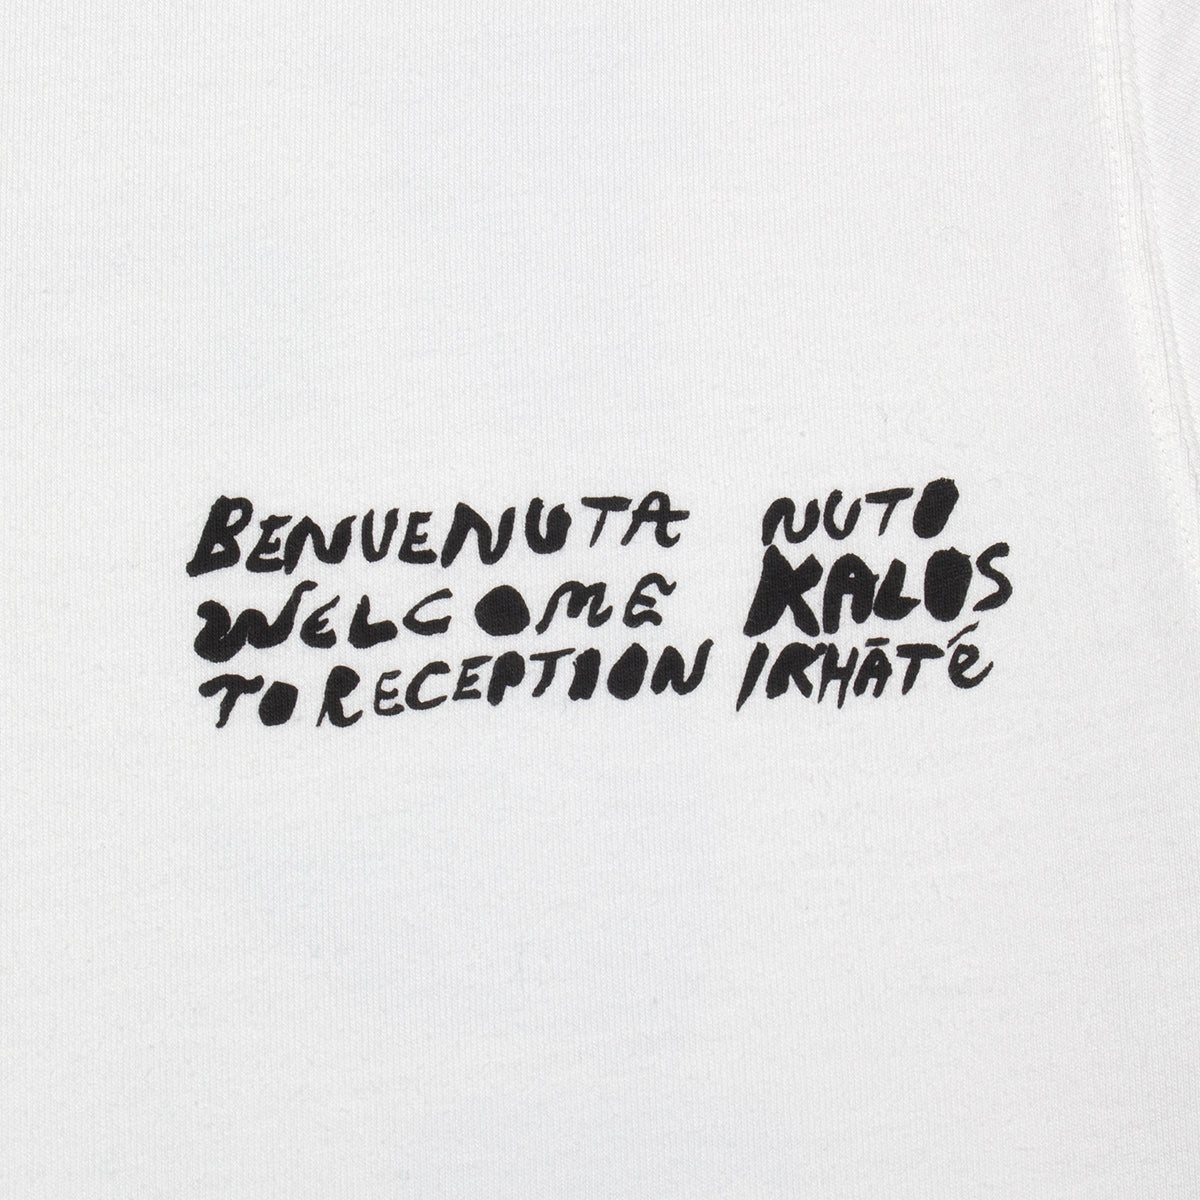 BENVENUTA NUTO
WELCOME KALOS
TO RECEPTION IRHĀTÉ